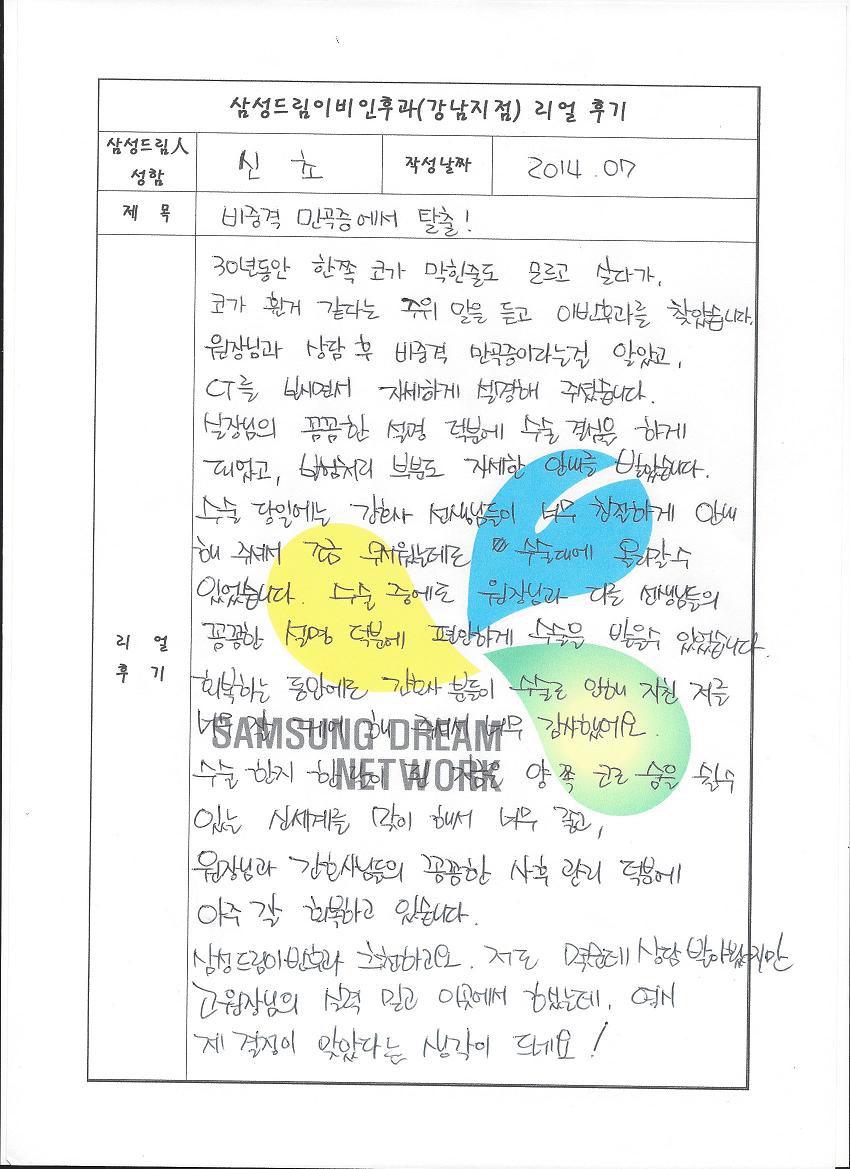 삼성드림이비인후과(강남지점) 리얼 후기
삼성드림人 성함
신 초
작성날짜
2014.07
제 목
비중격 만곡증에서 탈출!
리 얼 후 기
30년동안 한쪽 코가 막힌줄도 모르고 살다가,
코가 휜거 같다는 주위 말을 듣고 이빈후과를 찾았습니다.
원장님과 상담 후 비중격 만곡증이라는걸 알았고,
CT를 보시면서 자세하게 설명해 주셨습니다.
실장님의 꼼꼼한 설명 덕분에 수술 결심을 하게
되었고, 보험처리 부분도 자세한 안내를 받았습니다.
수술 당일에는 간호사 선생님들이 너무 친절하게 안내
해 주셔서 조금 무서웠는데도 수술대에 올라갈 수
있었습니다. 수술 중에도 원장님과 다른 선생님들의
꼼꼼한 설명 덕분에 편안하게 수술을 받을수 있었습니다.
회복하는 동안에도 간호사 분들이 수술로 인해 지친 저를
너무 잘 케어 해 주셔서 너무 감사했어요.
SAMSUNG DREAM
NETWORK
수술 한지 한달이 된 지금은 양 쪽 코로 숨을 쉴수
있는 신세계를 맞이 해서 너무 좋고,
원장님과 간호사님들의 꼼꼼한 사후 관리 덕분에
아주 잘 회복하고 있습니다.
삼성드림이빈후과 추천하고요. 저도 상담 받아봤지만
고원장님의 실력 믿고 이곳에서 했는데, 역시
제 결정이 맞았다는 생각이 드네요!